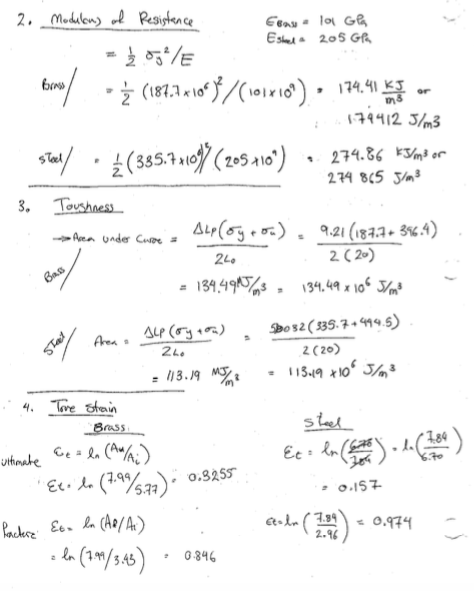 2. Modulus of Resistance
E Brass = 101 GPa
E steel = 205 GPa
= 1/2 σy²/E
Brass/ = 1/2 (187.7 x 10⁶)²/(101x10⁹) = 174.41 KJ/m³ or
174412 J/m3
steel/ = 1/2 (335.7x10⁶)²/(205x10⁹) = 274.86 KJ/m³ or
274 865 J/m³
3. Toughness
→ Area Under Curve = ΔLp(σy + σu)/2L₀ = 9.21(187.7+396.4)/2(20)
Brass/ = 134.49 MJ/m3 = 134.49 x 10⁶ J/m³
Steel/ Area = ΔLp(σy+σu)/2L₀ = (335.7+499.5)/2(20)
= 113.19 MJ/m³ = 113.19 x10⁶ J/m³
4. True Strain
Brass
Steel
ultimate εt = ln (Au/Ai)
εt = ln = ln (7.84/6.70)
εt = ln (7.99/5.77) = 0.3255
= 0.157
εt = ln (Af/Ai)
εt = ln (7.84/2.96) = 0.974
= ln (7.99/3.43) = 0.846